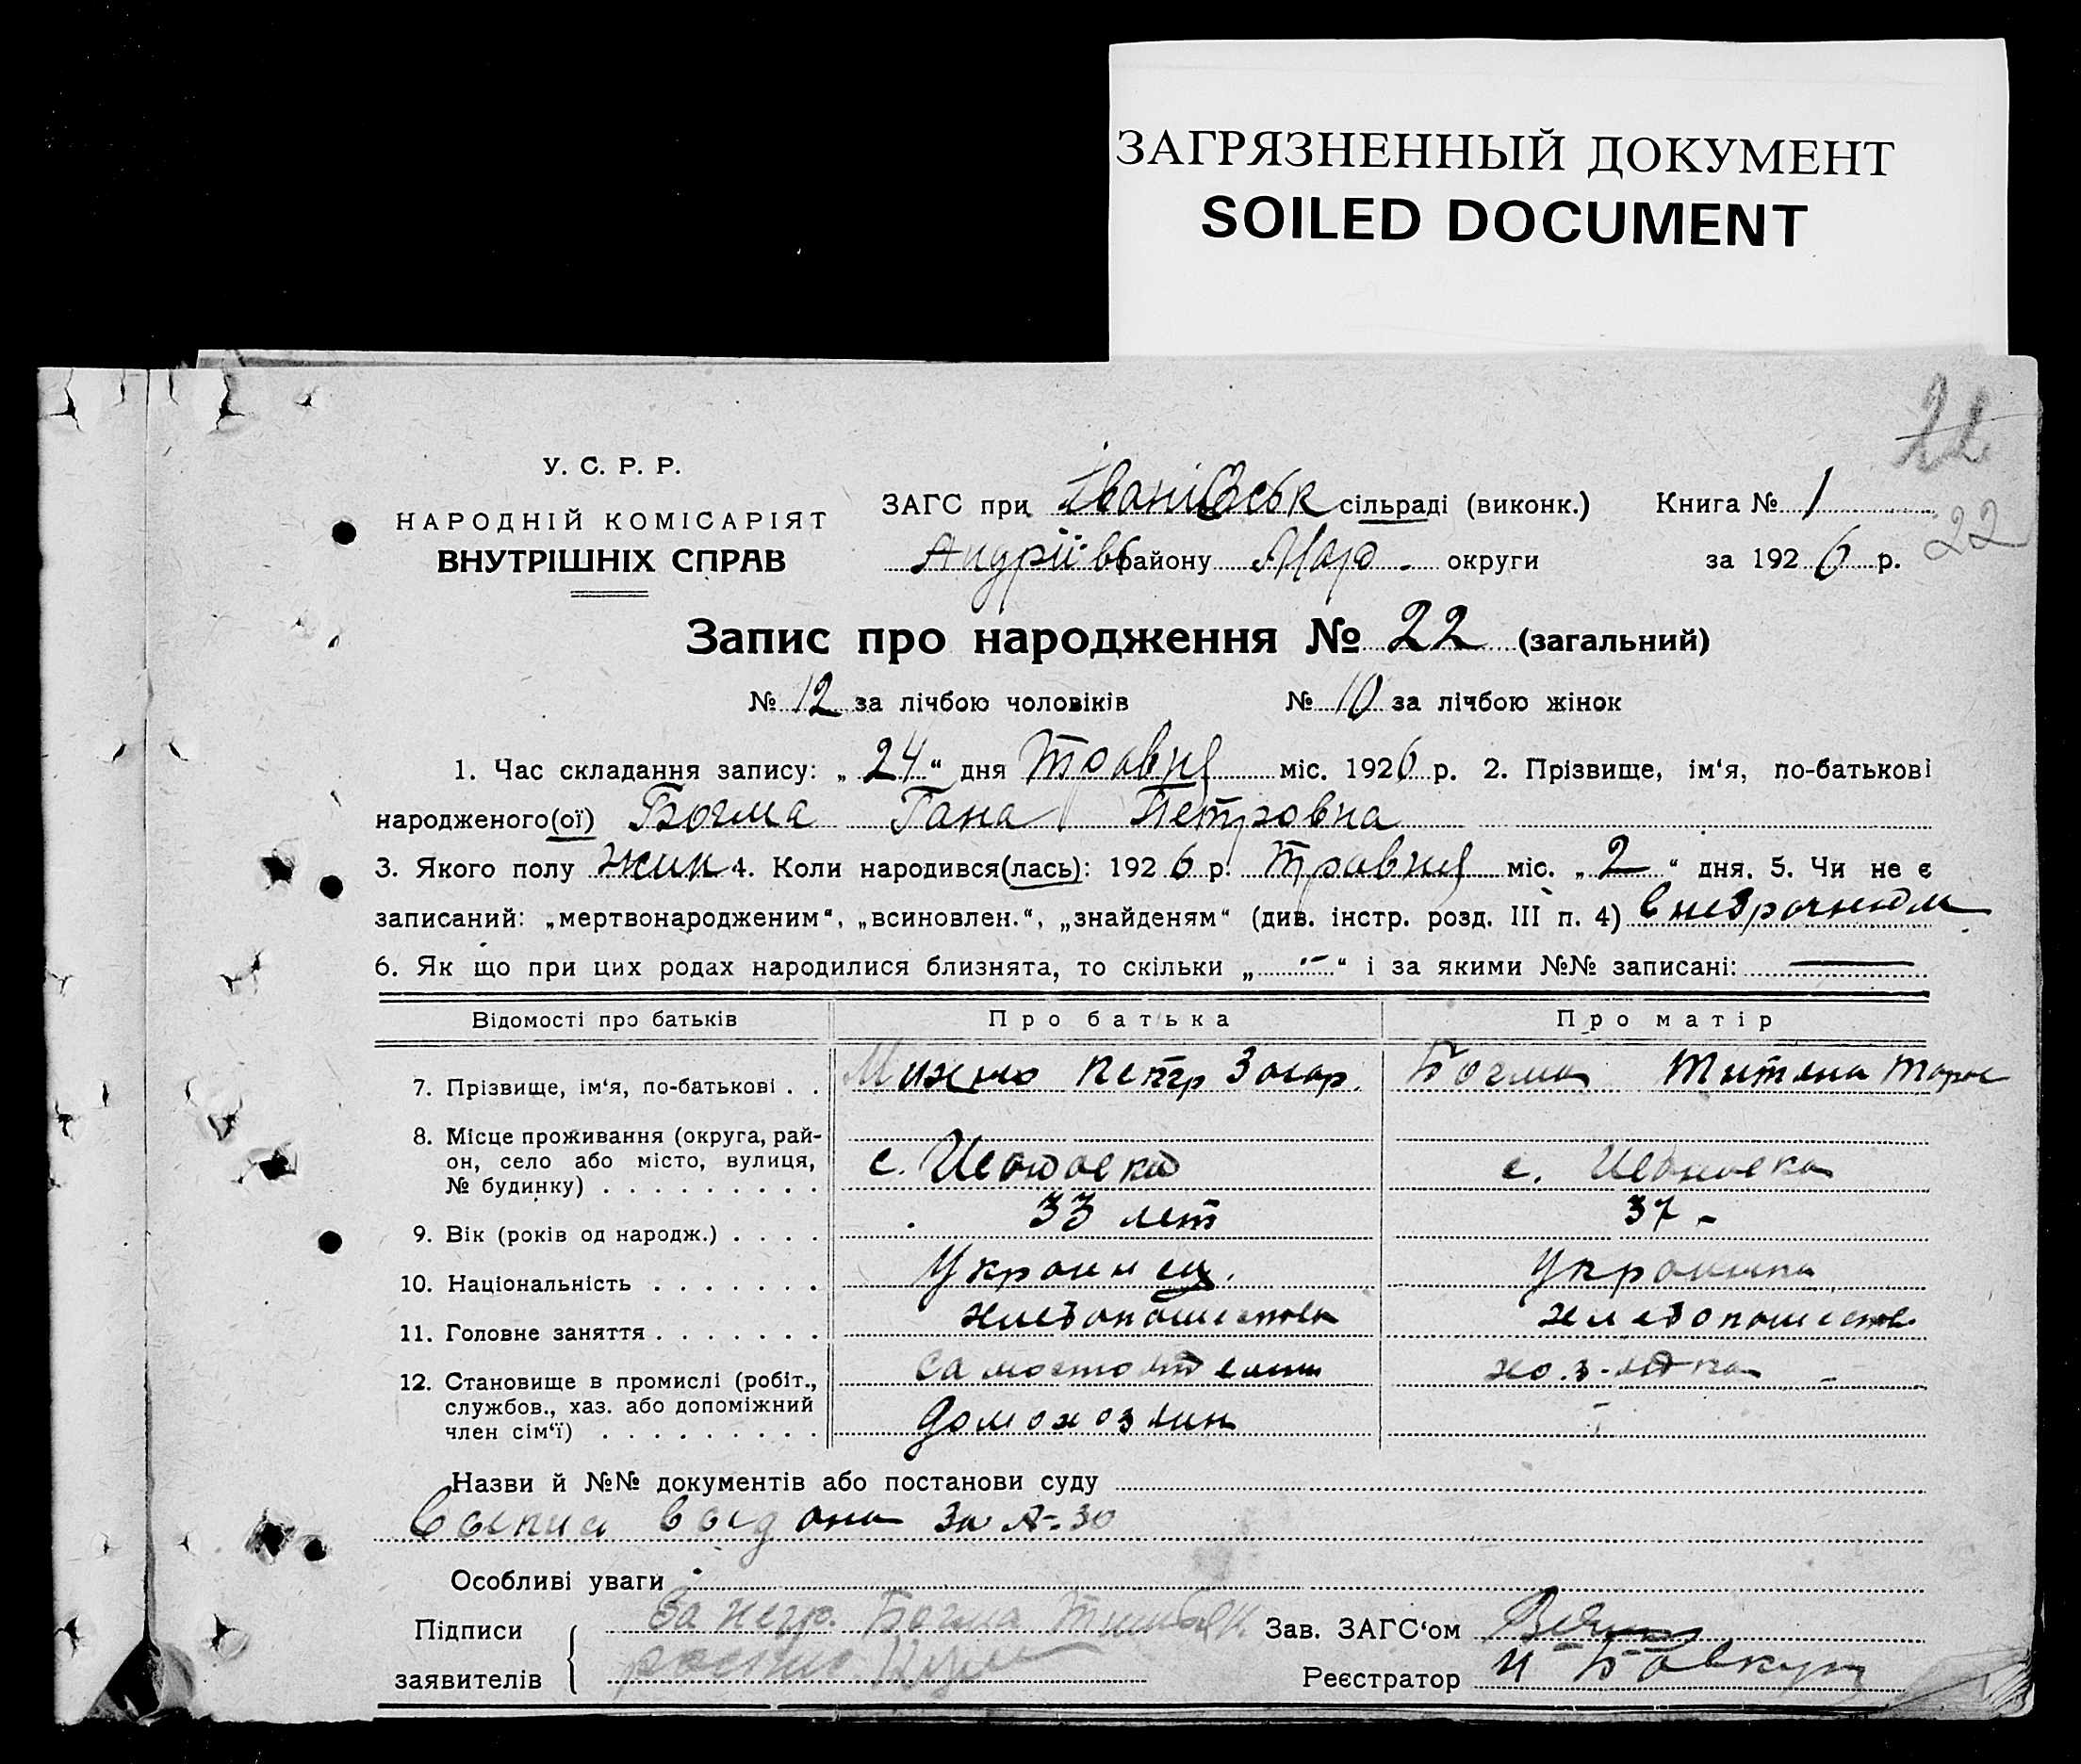 ЗАГРЯЗНЕННЫЙ ДОКУМЕНТ
SOILED DOCUMENT
22
У. С. Р. Р.
НАРОДНІЙ КОМІСАРІЯТ
ВНУТРІШНІХ СПРАВ
ЗАГС при Іванівськ сільраді (виконк.) Книга № 1
Андріївс району Мар. округи за 1926 р.
22
Запис про народження № 22 (загальний)
№ 12 за лічбою чоловіків № 10 за лічбою жінок
1. Час складання запису: „24“ дня Травня міс. 1926 р. 2. Прізвище, ім‘я, по-батькові
народженого(ої) Богма Гана Петровна
3. Якого полу жин 4. Коли народився(лась): 1926 р. Травня міс. „2“ дня. 5. Чи не є
записаний: „мертвонародженим“, „всиновлен.“, „знайденям“ (див. інстр. розд. III п. 4)
6. Як що при цих родах народилися близнята, то скільки „-“ і за якими №№ записані: —
Відомості про батьків Про батька Про матір
7. Прізвище, ім‘я, по-батькові . . Петр Захар. Богма Титяна Тарас
8. Місце проживання (округа, рай-
он, село або місто, вулиця, с. Ивановка с. Ивановка
№ будинку) . . . . . . . . .
9. Вік (років од народж.) . . . . 33 лет 37 -
10. Національність . . . . . . . Украинец. Украинка
11. Головне заняття . . . . . . . хлебопашество хлебопашеств
12. Становище в промислі (робіт., самостоятельн хоз-йка -
службов., хаз. або допоміжний домохозяин
член сім‘ї) . . . . . . . . .
Назви й №№ документів або постанови суду
выдана за №-30
Особливі уваги
Підписи За негр. Богма Зав. ЗАГС‘ом
заявителів Реєстратор